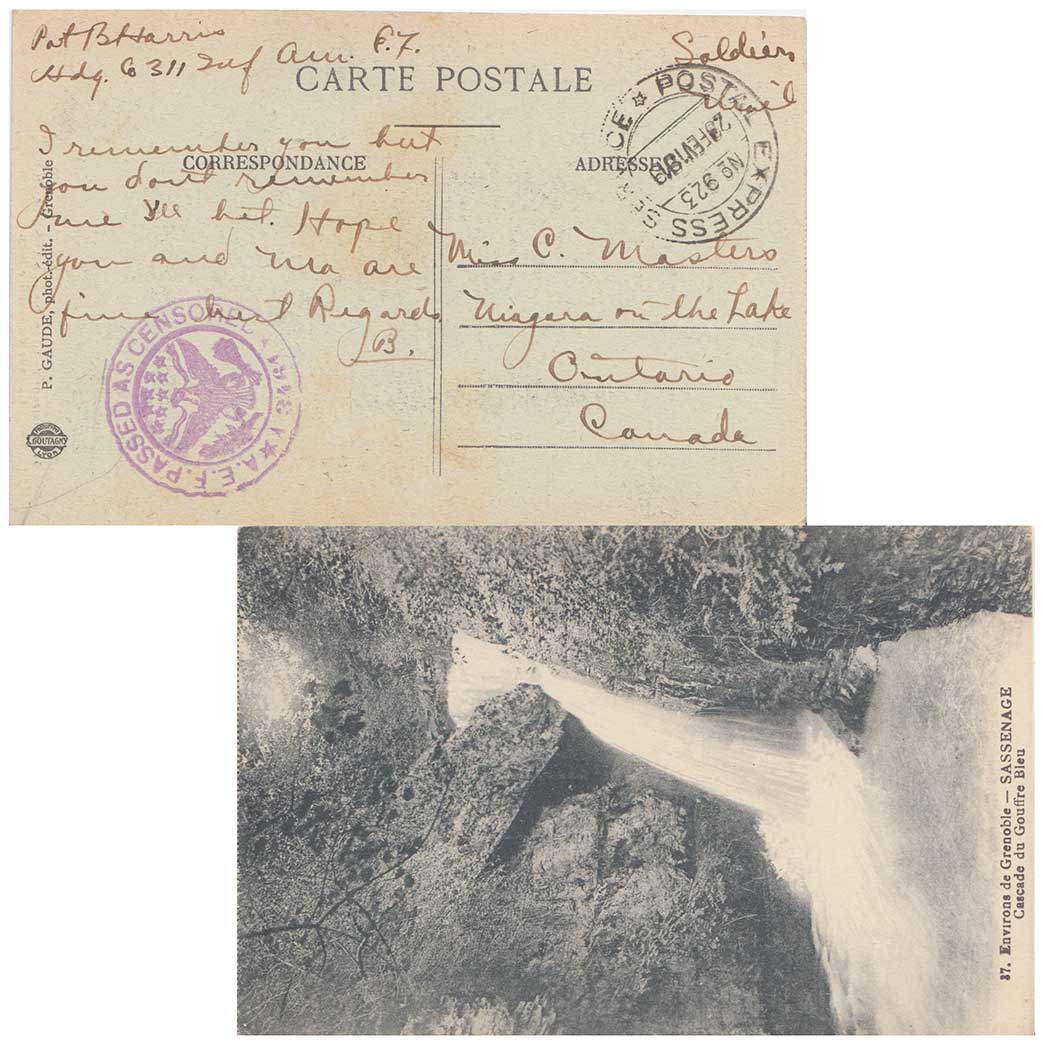 Pvt B Harris
Hdq. Co 311 Inf Am. E.F.
Soldiers
Mail
CARTE POSTALE
CORRESPONDANCE
ADRESSE
POSTAL EXPRESS SERVICE
No 923
I remember you but
you dont remember
me I'll bet. Hope
you and Ma are
fine best Regards
B.
Miss C. Masters
Niagara on the Lake
Ontario
Canada
P. GAUDE, phot.-édit. - Grenoble
A.E.F. PASSED AS CENSORED
GOUTAGNY
LYON
37. Environs de Grenoble — SASSENAGE
Cascade du Gouffre Bleu